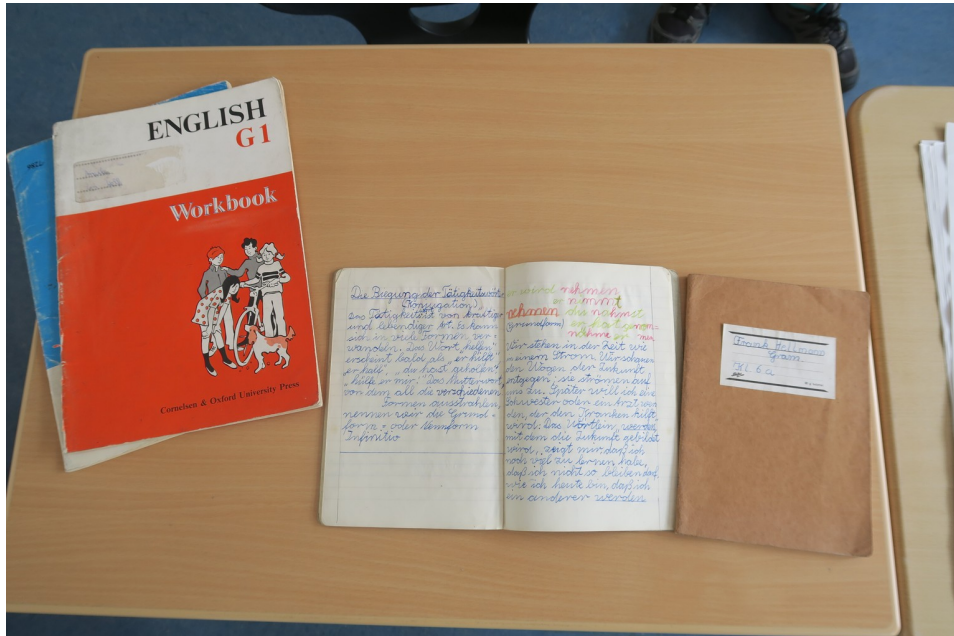 ENGLISH
G1
Workbook
Cornelsen & Oxford University Press
Die Bugung der Tätigkeitswörter
(Konjugation)
Das Tätigkeitswort ist von kräftiger
und lebendiger Art. Es kann
sich in viele Formen ver-
wandeln. Das Wort „helfen"
erscheint bald als „er hilft"
er half", „du hast geholfen"
„hülfe er mir!" Das Mutterwort
von dem all die verschiedenen
Formen ausstrahlen,
nennen wir die Grund-
form - oder Nennform
Infinitiv
er wird nehmen
er nimmt
nehmen du nahmst
(Grundform) er hat genom-
nähme er men
Wir stehen in der Zeit wie
in einem Strom. Wir schauen
den Wogen der Zukunft
entgegen; sie strömen auf
uns zu. Später will ich eine
Schwester oder ein Arzt wer
den, der den Kranken helfen
wird. Das Wörtlein „werden"
mit dem die Zukunft gebildet
wird, zeigt mir, daß ich
noch viel zu lernen habe,
daß ich nicht so bleiben darf,
wie ich heute bin, daß ich
ein anderer werden
Frank
Gram.
Kl. 6a